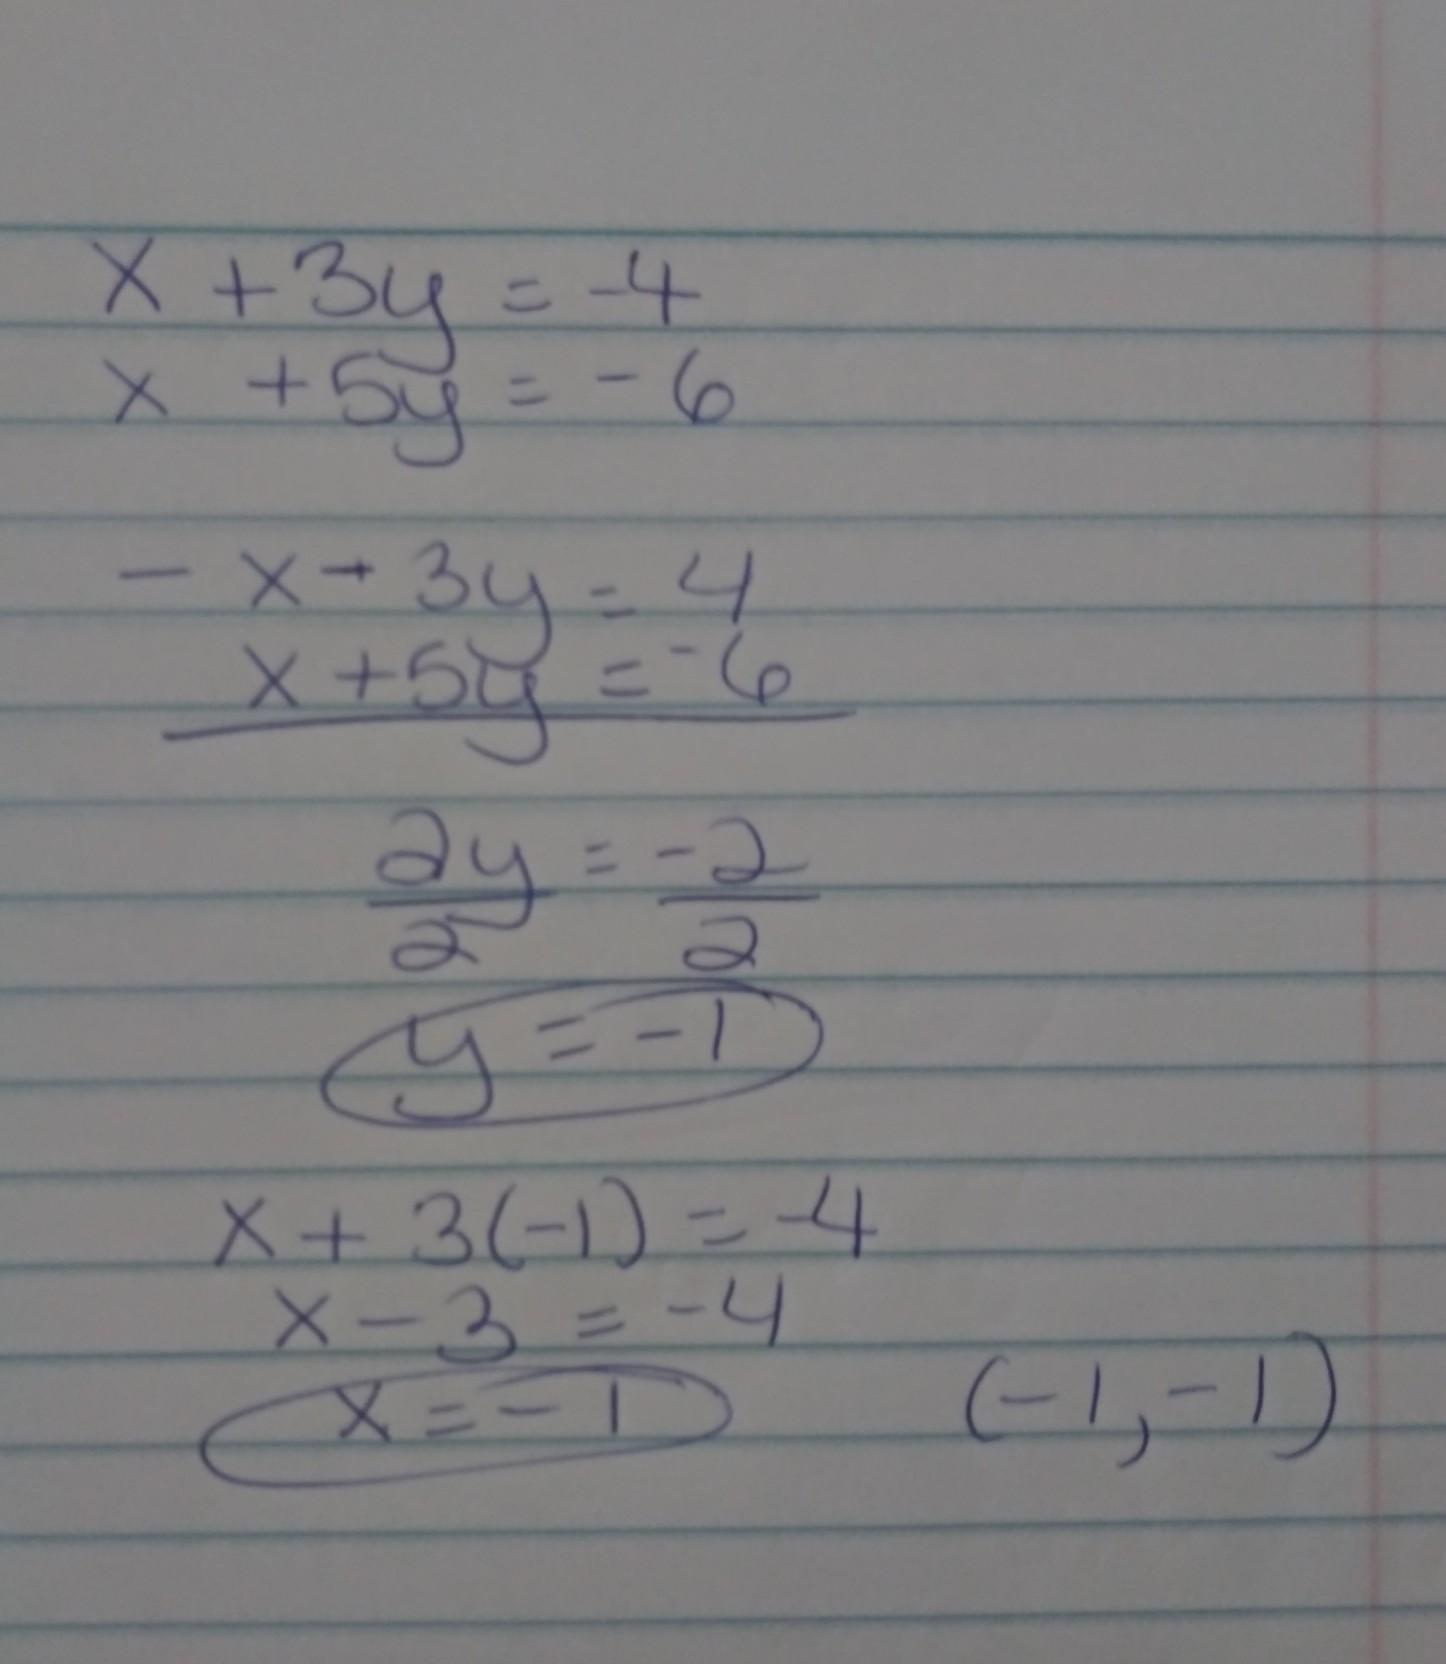 x + 3y = -4
x + 5y = -6
- x - 3y = 4
x + 5y = -6
2y = -2
2 2
y = -1
x + 3(-1) = -4
x - 3 = -4
x = -1 (-1, -1)